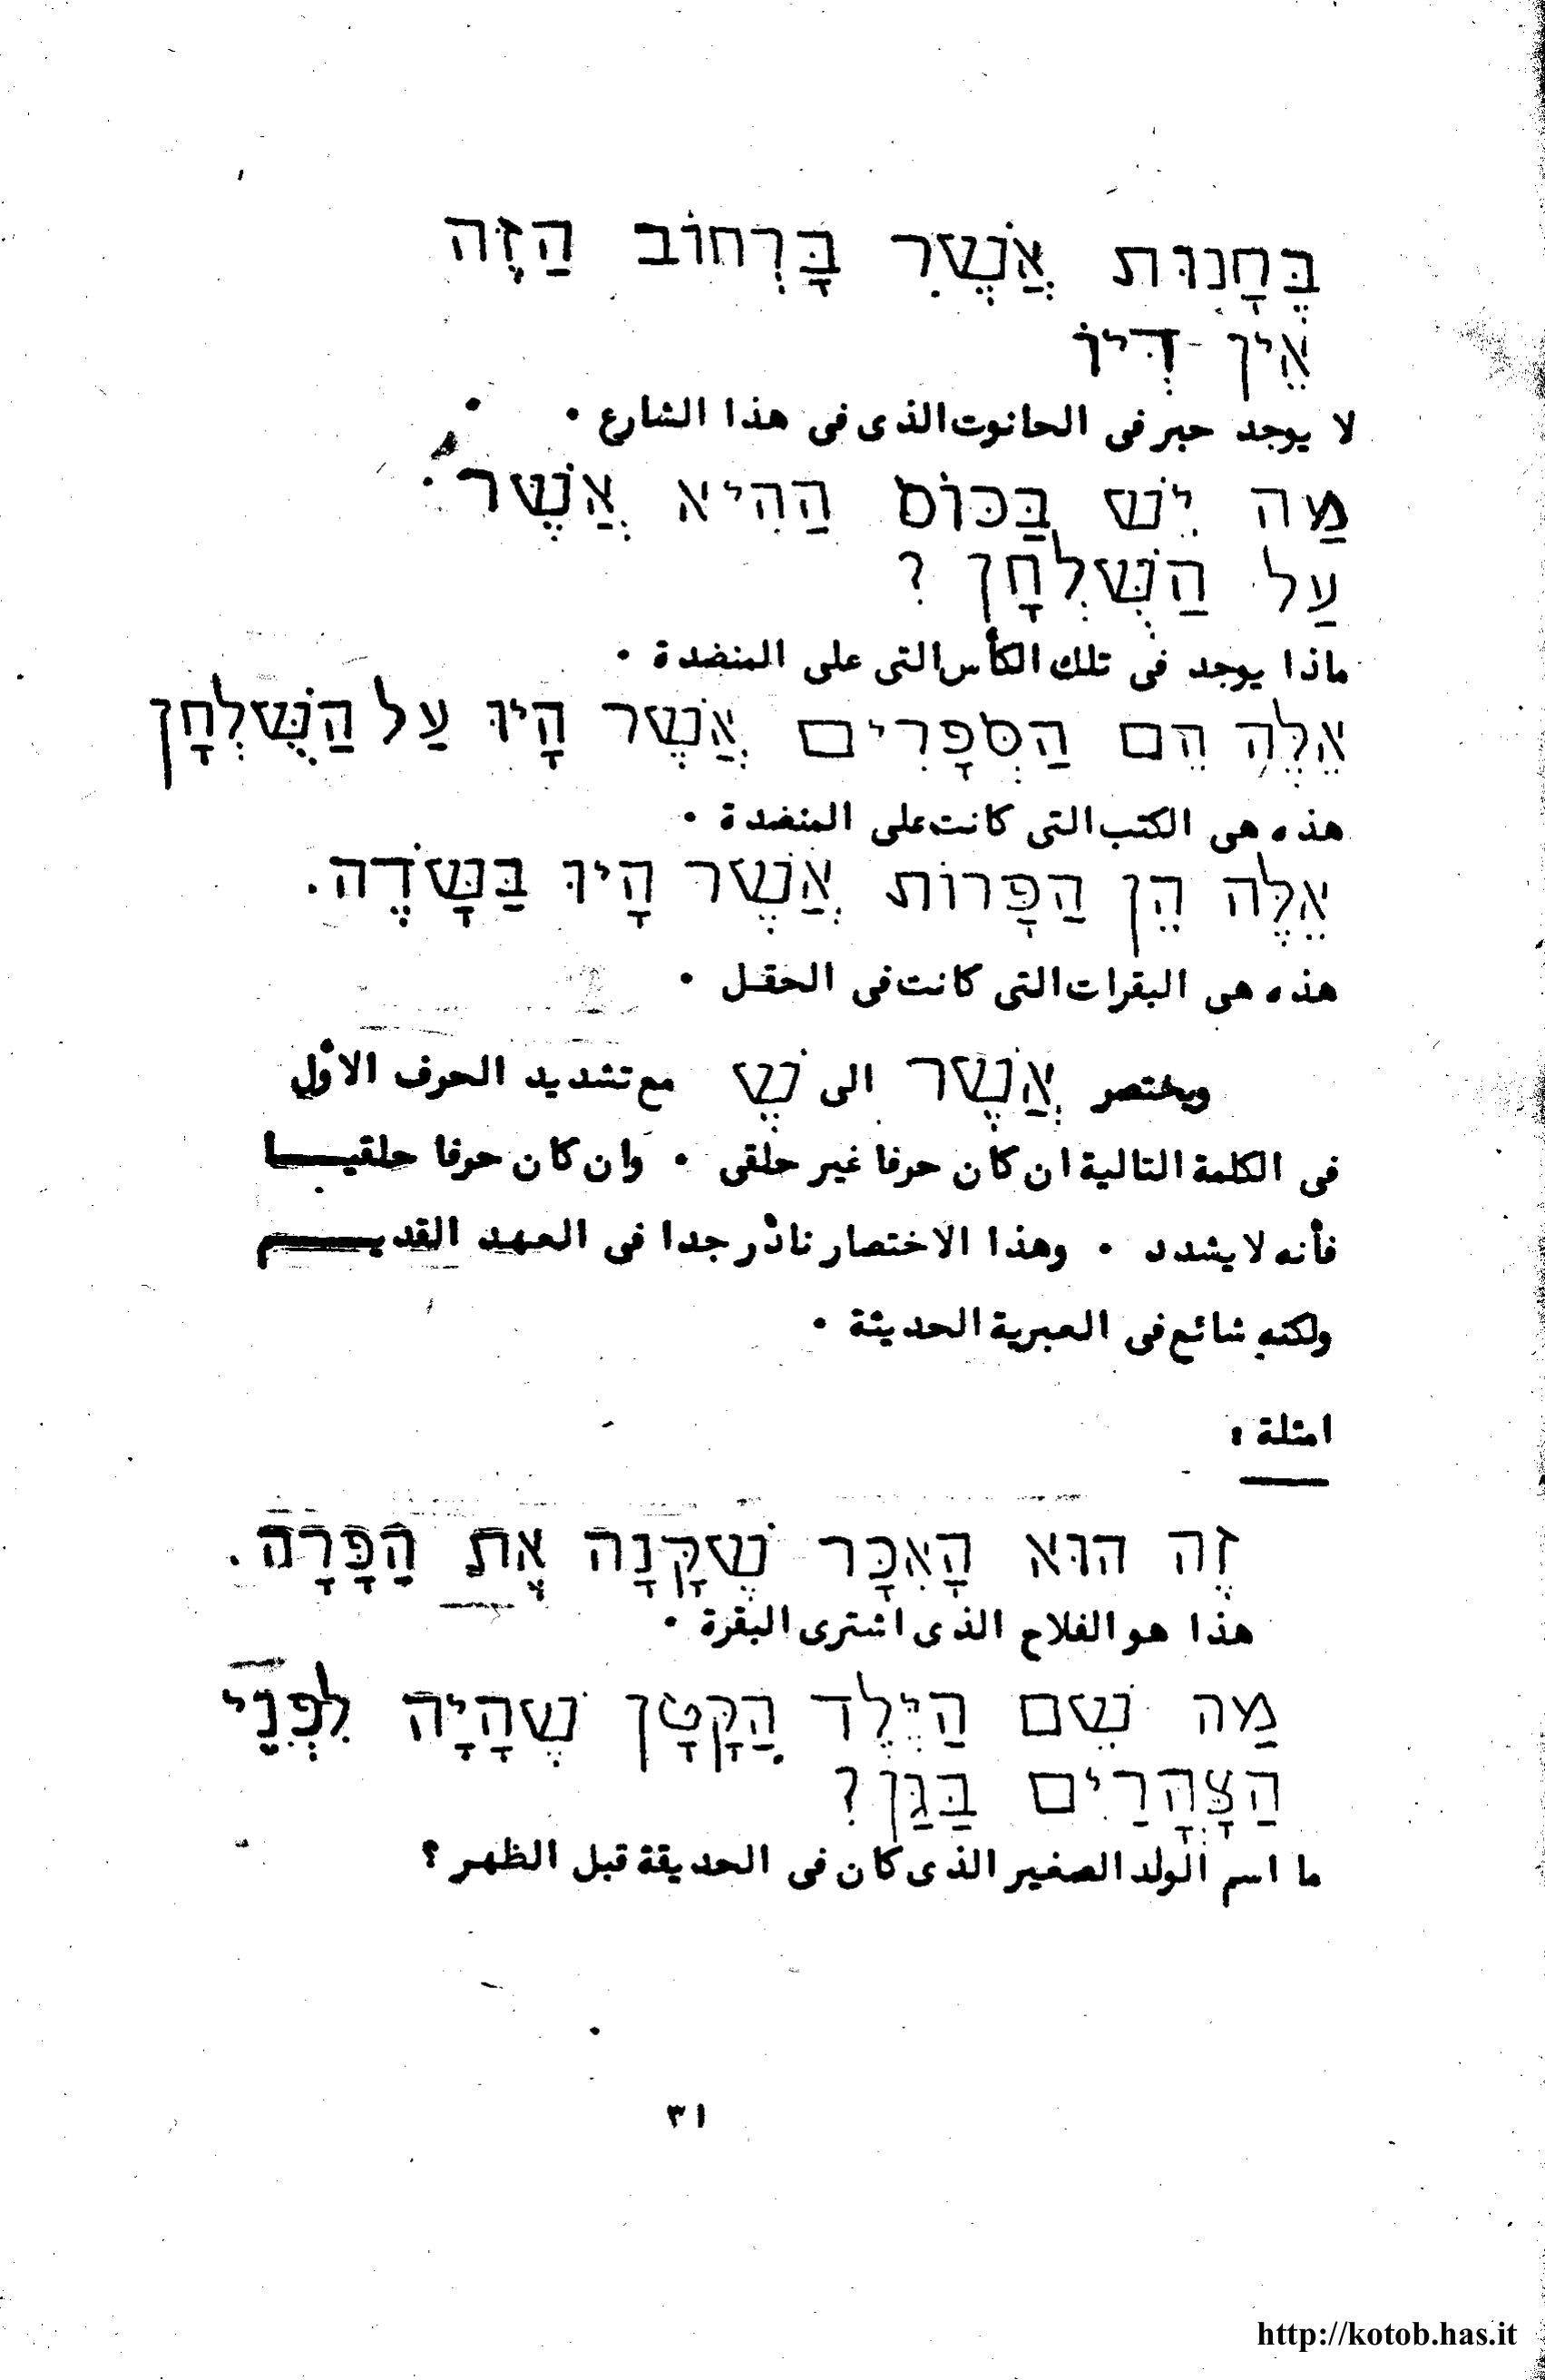 בֶּחָנוּת אֲשֶׁר בָּרְחוֹב הַזֶּה
אֵין דְּיוֹ
لا يوجد حبر فى الحانوت الذى فى هذا الشارع •
מַה יֵּשׁ בַּכּוֹס הַהִיא אֲשֶׁר
עַל הַשֻּׁלְחָן ?
ماذا يوجد فى تلك الكأس التى على المنضدة •
אֵלֶּה הֵם הַסְּפָרִים אֲשֶׁר הָיוּ עַל הַשֻּׁלְחָן
هذه هى الكتب التى كانت على المنضدة •
אֵלֶּה הֵן הַפָּרוֹת אֲשֶׁר הָיוּ בַּשָּׂדֶה.
هذه هى البقرات التى كانت فى الحقل •
ويختصر אֲשֶׁר الى שֶׁ مع تشديد الحرف الأول
فى الكلمة التالية ان كان حرفا غير حلقى • وان كان حرفا حلقيـــا
فأنه لا يشدد • وهذا الاختصار نادر جدا فى العهد القديـــم
ولكنه شائع فى العبرية الحديثة •
امثلة :
זֶה הוּא הָאִכָּר שֶׁקָּנָה אֶת הַפָּרָה.
هذا هو الفلاح الذى اشترى البقرة •
מַה שֵׁם הַיֶּלֶד הַקָּטָן שֶׁהָיָה לִפְנֵי
הַצָּהֳרַיִם בַּגַּן?
ما اسم الولد الصغير الذى كان فى الحديقة قبل الظهر ؟
٣١
http://kotob.has.it